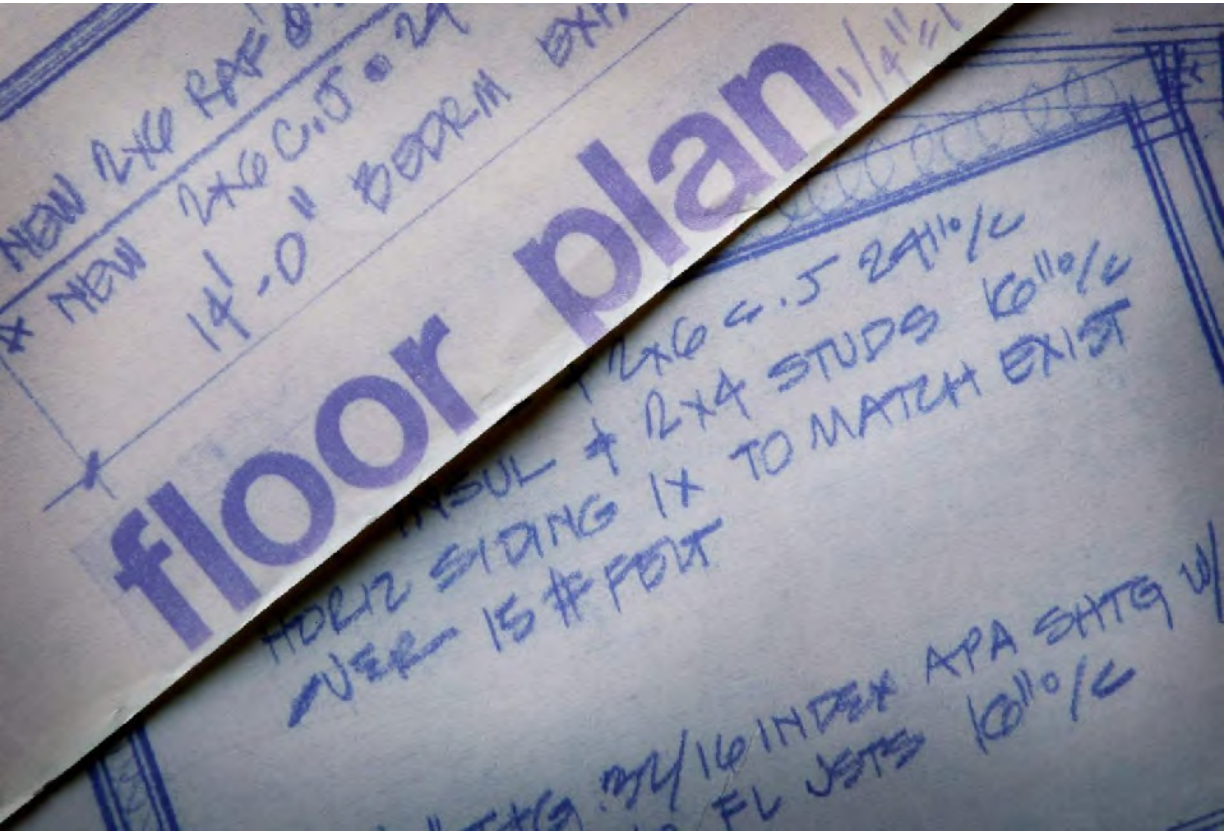 NEW 2X6 RAF
NEW 2X6 C.J. @ 24
14'-0" BEDRM
floor plan
1/4"=1
2X6 C.J 24"o/c
INSUL + 2X4 STUDS 16"o/c
HORIZ SIDING 1X TO MATCH EXIST
OVER 15# FELT
T&G 32/16 INDEX APA SHTG w/
FL JSTS 16"o/c